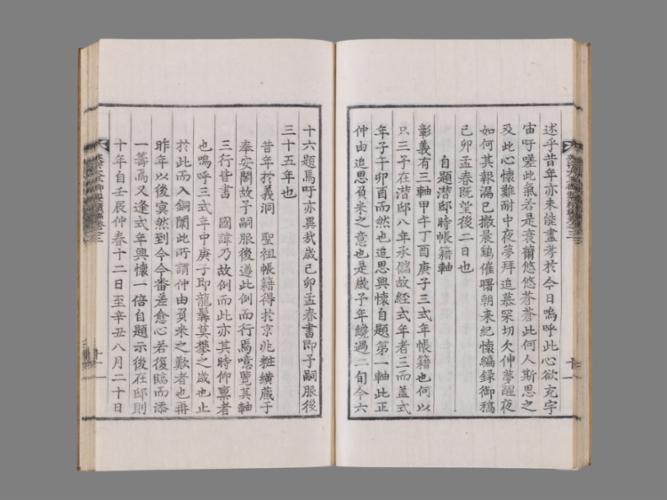 述乎昔年亦未能盡孝於今日嗚呼此心欲充宇
宙吁嗟此氣若是衰爾悠悠蒼蒼此何人斯思之
及此心懷難耐中夜夢拜追慕冞切欠伸夢醒夜
如何其報漏已撤晨鷄催曙朝來紀懷編錄御稿
己卯孟春旣望後二日也
自題潛邸時帳籍軸
彰義有三軸甲午丁酉庚子三式年帳籍也何以
只三子在潛邸八年承儲故經式年者三而盖式
年子午卯酉而然也追思興懷自題第一軸此正
仲由追思負米之意也是歲予年繞過二旬今六
十六題焉吁亦異哉歲己卯孟春書卽子嗣服後
三十五年也
昔年於義洞 聖祖帳籍得於京兆粧䌙藏于
奉安閣故子嗣服後遵此例而行焉噫覽其軸
三行皆書 國諱乃故例而此亦其時仰冩者
也嗚呼三式年中庚子卽龍髯莫攀之歲也止
於此而入銅闈此所謂仲由負米之歎者也再
昨年以後寞然到今今番差愈心若復臨而添
一籌高又逢式年興懷一倍自題示後在邸則
十年自壬辰仲春十二日至辛丑八月二十日